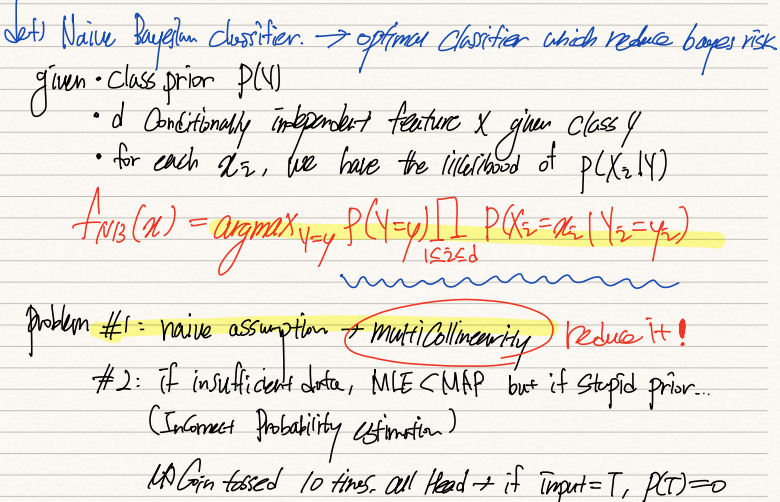 def) Naive Bayesian classifier. → optimal classifier which reduce bayes risk
given · class prior P(Y)
· d Conditionally independent feature X given class Y
· for each xi, we have the likelihood of P(Xi|Y)
fNB(x) = argmax Y=y P(Y=y) ∏ 1≤i≤d P(Xi=xi | Yi=yi)
problem #1: naive assumption → multicollinearity reduce it!
#2: if insufficient data, MLE < MAP but if stupid prior...
(Incorrect Probability estimation)
Coin tossed 10 times. all Head → if input=T, P(T)=0